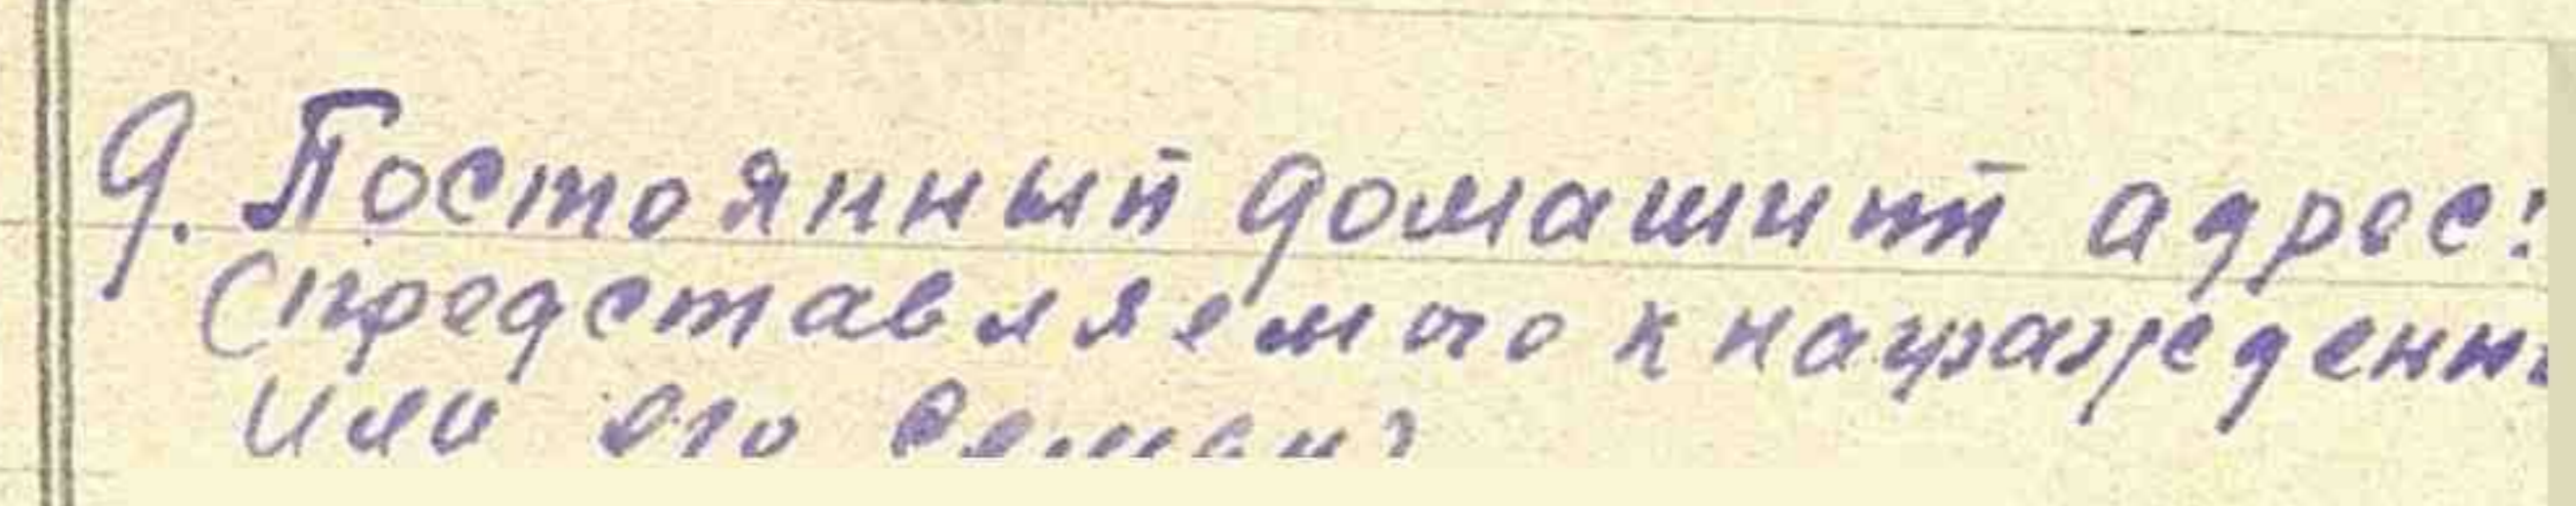 9. Постоянный домашний адрес:
(представляемого к награждени
или его семьи)